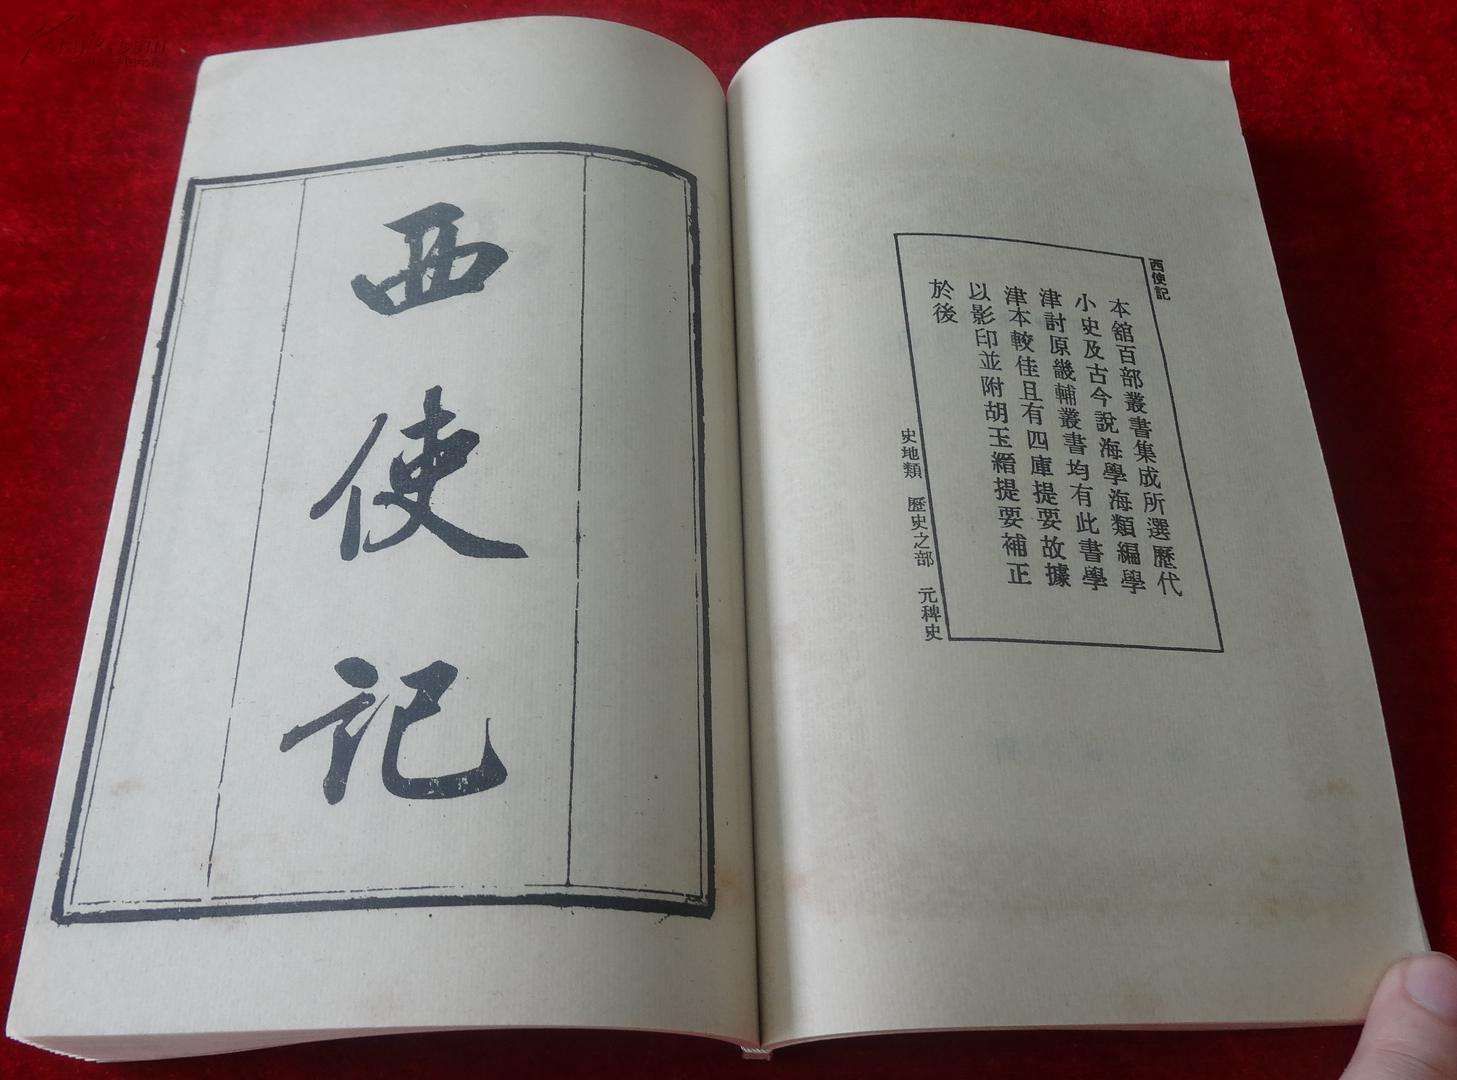 西使記
本舘百部叢書集成所選歷代
小史及古今說海學海類編學
津討原畿輔叢書均有此書學
津本較佳且有四庫提要故據
以影印並附胡玉縉提要補正
於後
史地類 歷史之部 元稗史
西使記